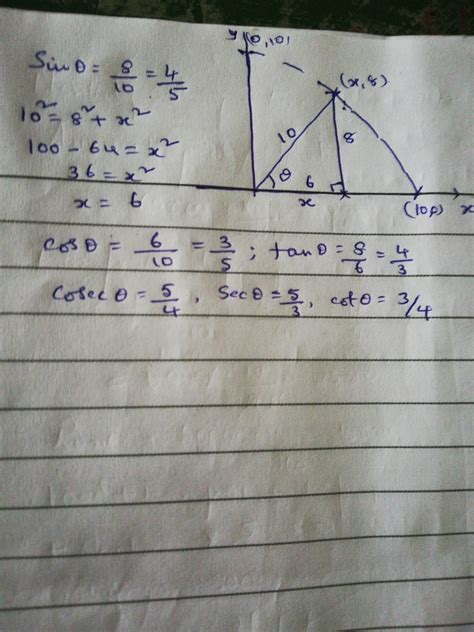 sinθ = 8/10 = 4/5
10² = 8² + x²
100 - 64 = x²
36 = x²
x = 6
y
(0,10)
(x,8)
10
8
θ
6
x
(10,0)
x
cosθ = 6/10 = 3/5 ; tanθ = 8/6 = 4/3
cosecθ = 5/4 , secθ = 5/3 , cotθ = 3/4